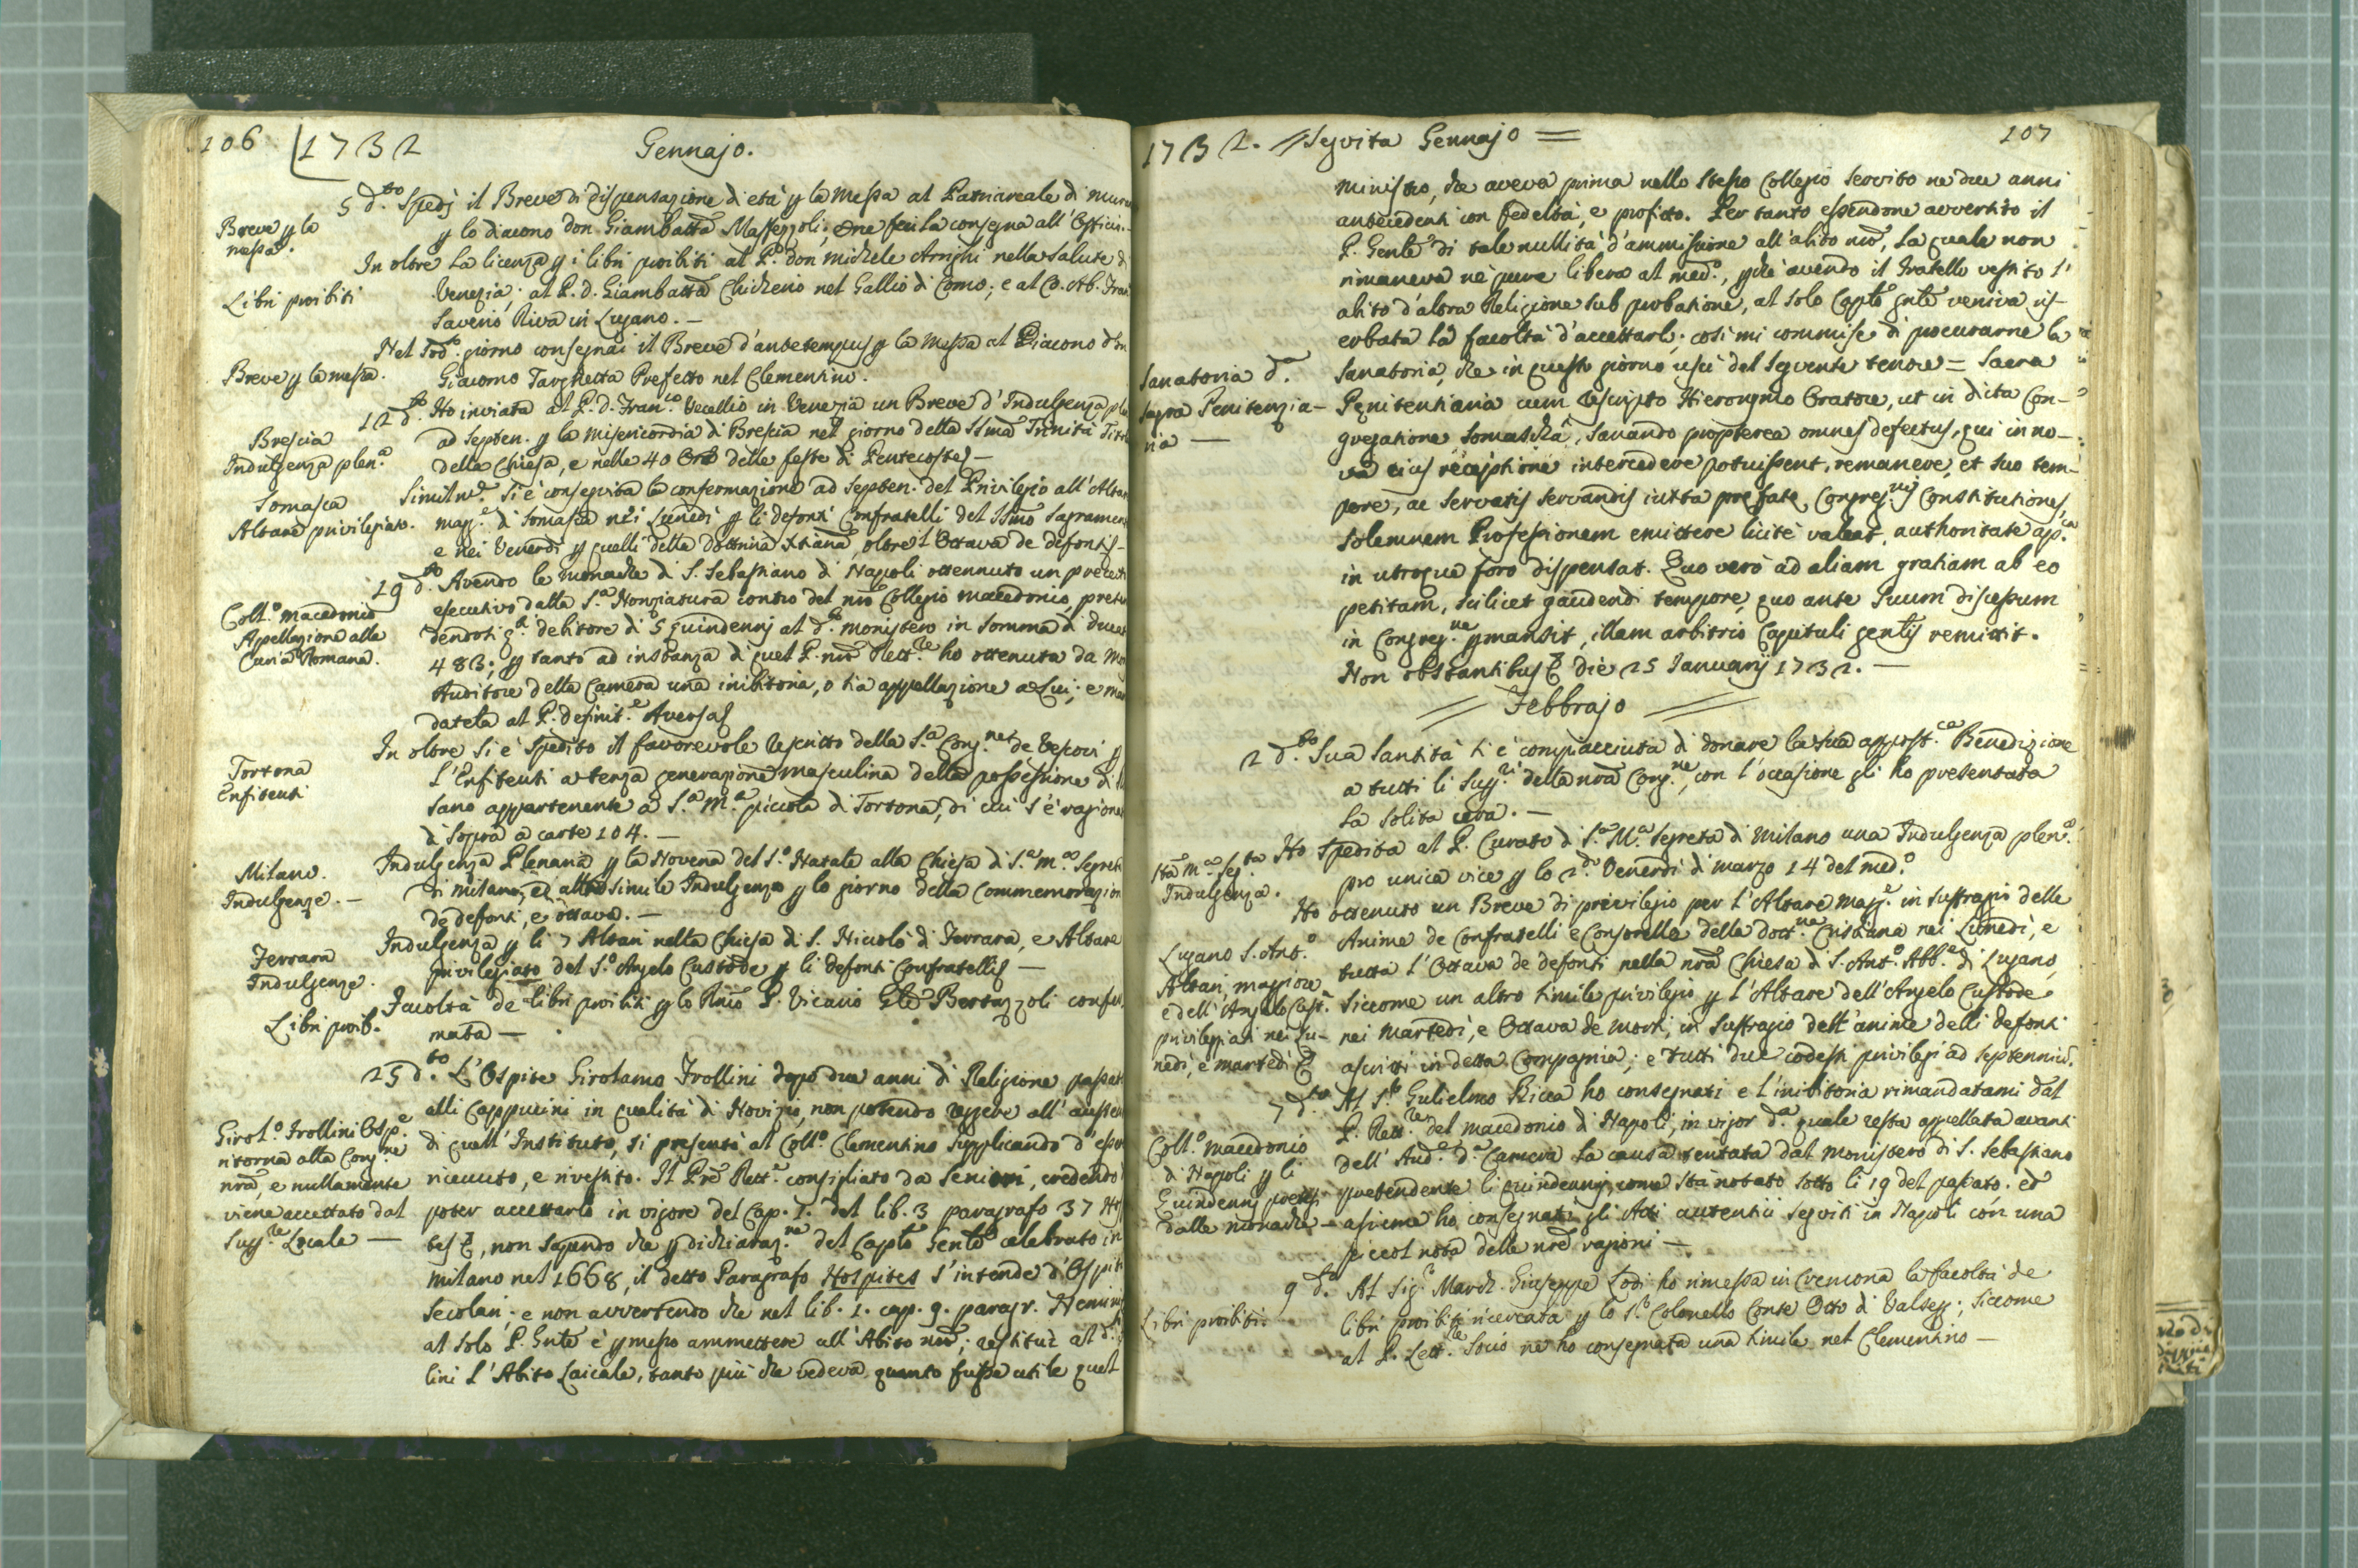 106 1732 Gennajo.
5 d.to Spedj il Breve di dispensazione di età p la Messa al Patriarcale di Mura
Breve p la messa.
p lo diacono don Giambatta Maffezzoli; e ne feci la consegna all' Officio.
In oltre la licenza p i libri proibiti al P. don Michele Arrighi nella Salute di
Libri proibiti
Venezia; al P. d. Giambatta Chicherio nel Gallio di Como; e al C. Ab. Fran.
Saverio Riva in Lugano. —
Nel sod.o giorno consegnai il Breve d'antetempus p la Messa al Diacono don
Breve p la messa.
Giacomo Targhetta Prefetto nel Clementino.
12 d.to Ho inviata al P. D. Fran.co Vecellio in Venezia un Breve d'Indulgenza ple
Brescia
Indulgenza plen.a
ad septen. p la Misericordia di Brescia nel giorno della SSma Trinità Tito
della Chiesa, e nelle 40 Ore delle feste di Pentecoste —
Somasca
Altare privilegiato.
Similm.e si è conseguita la confermazione ad septen. del Privilegio all'Altar
magg.e di Somasca nei Lunedì p li defonti Confratelli del SSmo Sagramen
e nei Venerdì p quelli della dottrina Xtiana, oltre l'Ottava de defonti —
19 d.to Avendo le monache di S. Sebastiano di Napoli ottennuto un precet
Coll.o Macedonio
Appellazione alla
Curia Romana.
esecutivo dalla S.a Nonziatura contro del nro Collegio Macedonio, preten
dendosi q.l debitore di 5 quindennj al d.o monistero in somma di ducat
483; p tanto ad instanza di quel P. nro Rett.re ho ottenuta da Mo
Auditore della Camera una inibitoria, o sia appellazione a Lui; e man
datela al P. Definit.e Aversa
In oltre si è spedito il favorevole rescritto della S.a Cong.ne de Vescovi p
Tortona
Enfiteuti
l'Enfiteuti a terza generazione masculina della possessione di
sano appartenente a S.a M.a piccola di Tortona, di cui s'è ragiona
di sopra a carte 104. —
Milano.
Indulgenze. —
Indulgenza Plenaria p la Novena del S.o Natale alla Chiesa di S.a M.a Segreta
di Milano, ed altra simile Indulgenza p lo giorno della Commemorazion
de defonti, e ottava. —
Ferrara
Indulgenze.
Indulgenza p li 7 Altari nella Chiesa di S. Nicolò di Ferrara, e Altare
privilegiato del S.o Angelo Custode p li defonti Confratelli —
Libri proib.
Facoltà de libri proibiti p lo Rmo P. Vicario Gle Bertazzoli confer.
mata —
25 d.to L'Ospite Girolamo Frollini dopo due anni di Religione passat
Girol.o Frollini Osp.e
ritorna alla Cong.ne
nra, e nullamente
viene accettato dal
Sup.re Locale —
alli Cappuccini in qualità di Novizio, non potendo reggere all'auster
di quell'Instituto, si presentò al Coll.o Clementino supplicando d'esser
ricevuto, e rivestito. Il Pre Rett.e consigliato da Seniori, credendo
poter accettarlo in vigore del Cap. I. del lib. 3 paragrafo 37 Hos
tes &, non sapendo che p dichiaraz.ne del Captlo Genle celebrato in
Milano nel 1668, il detto Paragrafo Hospites s'intende d'Ospiti
secolari; e non avvertendo che nel lib. 1. cap. 9. paragr. Nemini
al solo P. Gnle è pmesso ammettere all'Abito nro; restituì al d.o
lini l'Abito Laicale, tanto più che vedeva quanto fusse utile quel
1732. Seguita Gennajo 107
ministro, che aveva prima nello stesso Collegio servito ne due anni
antecedenti con fedeltà, e profitto. Per tanto essendone avvertito il
P. Genle di tale nullità d'ammissione all'abito nro, la quale non
rimaneva nè pure libera al med.o, pchè avendo il Fratello vestito l'
abito d'altra Religione sub probatione, al solo Captlo gnle veniva ris-
erbata la facoltà d'accettarlo; così mi commise di procurarne la
Sanatoria d.a
Sagra Penitenzia-
ria —
Sanatoria, che in questo giorno uscì del seguente tenore = Sacra
Penitentiaria cum rescripto Hieronymo Oratore, ut in dicta Con-
gregatione Somascha, sanando propterea omnes defectus, qui in no-
va eius receptione intercedere potuissent, remanere, et suo tem-
pore, ac servatis servandis iuxta prefate Congreg.nis Constitutiones,
solemnem Professionem emittere licitè valeat, authoritate ap.ca
in utroque foro dispensat. Quo verò ad aliam gratiam ab eo
petitam, scilicet gaudendi tempore, quo ante suum discessum
in Congreg.ne pmansit, illam arbitrio Capituli gentis remittit.
Non obstantibus & die 25 Januarij 1732. —
Febbrajo
2 d.to Sua Santità si è compiacciuta di donare la sua appost.ca Benedizione
a tutti li Sugg.ti della nra Cong.ne, con l'occasione gli ho presentata
la solita cera. —
Sta M.a Seg.ta
Indulgenza.
Ho spedita al P. Curato di S.a M.a Segreta di Milano una Indulgenza plen.a
pro unica vice p lo 2.do Venerdì di marzo 14 del med.o
Ho ottenuto un Breve di privilegio per l'Altare magg.e in suffragio delle
Lugano S. Ant.o
Altari maggiore
e dell'Angelo Cust.
privilegiati nei Lu-
nedì, e martedì &
Anime de Confratelli e Consorelle della dott.na Cristiana nei Lunedì, e
tutta l'Ottava de defonti nella nra Chiesa di S. Ant.o Abb.e di Lugano,
siccome un altro simile privilegio p l'Altare dell'Angelo Custode
nei Martedì, e Ottava de morti, in suffragio dell'anime delli defonti
ascritti in detta Compagnia; e tutti due codesti privilegi ad septennium.
7 d.to Al S.r Gulielmo Ricca ho consegnati e l'inibitoria rimandatami dal
Coll.o Macedonio
di Napoli p li
Quindennj pretesi
dalle monache —
P. Rett.re del Macedonio di Napoli, in vigor d.a quale resta appellata avanti
dell'Aud.e d.a Camera la causa tentata dal monistero di S. Sebastiano
pretendente li quindennj, come stà notato sotto li 19 del passato. ed
assieme ho consegnati gli Atti autentici seguiti in Napoli con una
piccol nota delle nre ragioni —
9 d.o Al Sig.r March. Giuseppe Lodi ho rimessa in Cremona la facoltà de
Libri proibiti.
libri proibiti ricercata p lo S.r Colonello Conte Otto di Valsegg; siccome
al P. Lett.re Socio ne ho consegnata una simile nel Clementino —